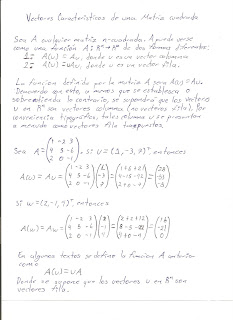 Vectores Característicos de una Matriz cuadrada
Sea A cualquier matriz n-cuadrada. A puede verse
como una función A: Rⁿ→Rⁿ de dos formas diferentes:
1: A(u) = Au, donde u es un vector columna
2: A(u) = uA, donde u es un vector fila.
La función definida por la matriz A será A(u) = Au.
De acuerdo con esto, a menos que se establezca o
sobreentienda lo contrario, se supondrá que los vectores
u en Rⁿ son vectores columna (no vectores fila). Por
conveniencia tipográfica, tales columnas u se presentan
a menudo como vectores fila transpuestos.
Sea A = (1 -2 3
4 5 -6
2 0 -1) . Si u = (1, -3, 7)ᵀ, entonces
A(u) = Au =
Si w = (2, -1, 4)ᵀ, entonces
A(w) = Aw =
En algunos textos se define la función A anterior
como
A(u) = uA
Donde se supone que los vectores u en Rⁿ son
vectores fila.